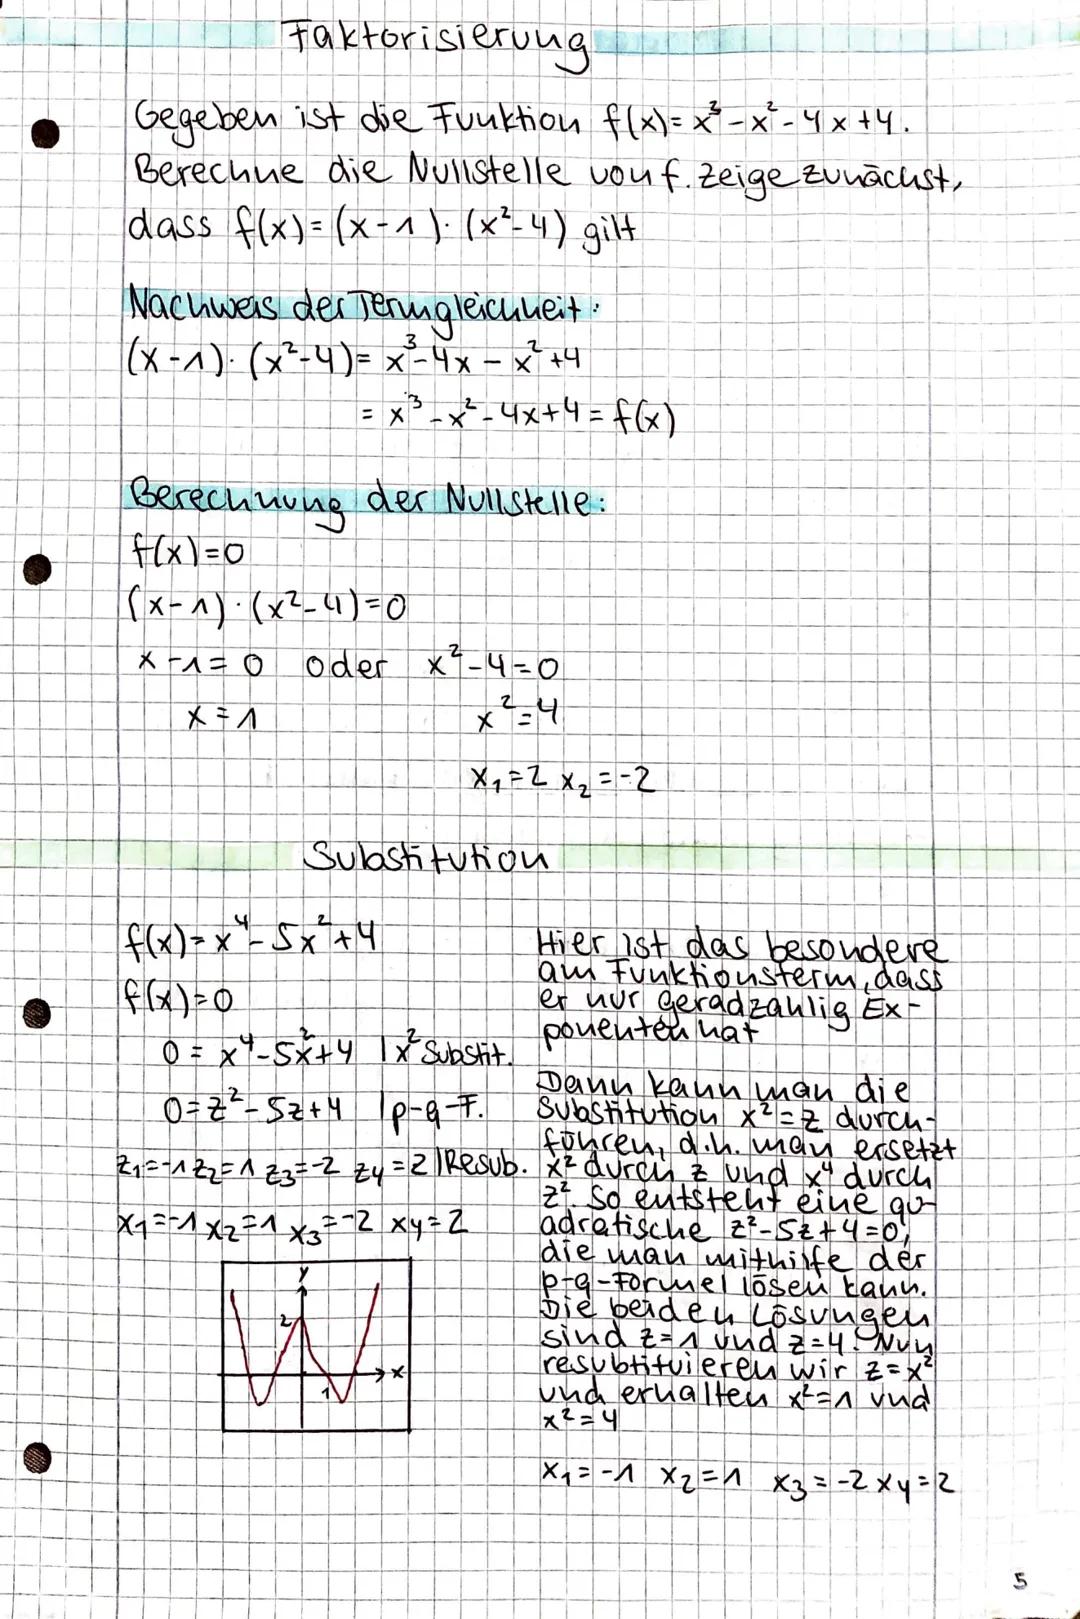 Faktorisierung
Gegeben ist die Funktion f(x)= x³-x²-4x+4.
Berechne die Nullstelle von f. Zeige zunächst,
dass f(x)=(x-1)·(x²-4) gilt
Nachweis der Termgleichheit:
(x-1)·(x²-4)= x³-4x-x²+4
= x³-x²-4x+4=f(x)
Berechnung der Nullstelle:
f(x)=0
(x-1)·(x²-4)=0
x-1=0 oder x²-4=0
x=1 x²=4
x₁=2 x₂=-2
Substitution
f(x)=x⁴-5x²+4
f(x)=0
0=x⁴-5x²+4 |x² Substit.
0=z²-5z+4 |p-q-F.
z₁=-1 z₂=1 z₃=-2 z₄=2 |Resub.
x₁=-1 x₂=1 x₃=-2 x₄=2
y
2
x
1
Hier ist das besondere
am Funktionsterm, dass
er nur geradzahlig Ex-
ponenten hat
Dann kann man die
Substitution x²=z durch-
führen, d.h. man ersetzt
x² durch z und x⁴ durch
z². So entsteht eine qu-
adratische z²-5z+4=0,
die man mithilfe der
p-q-Formel lösen kann.
Die beiden Lösungen
sind z=1 und z=4. Nun
resubtituieren wir z=x²
und erhalten x²=1 und
x²=4
x₁=-1 x₂=1 x₃=-2 x₄=2
5